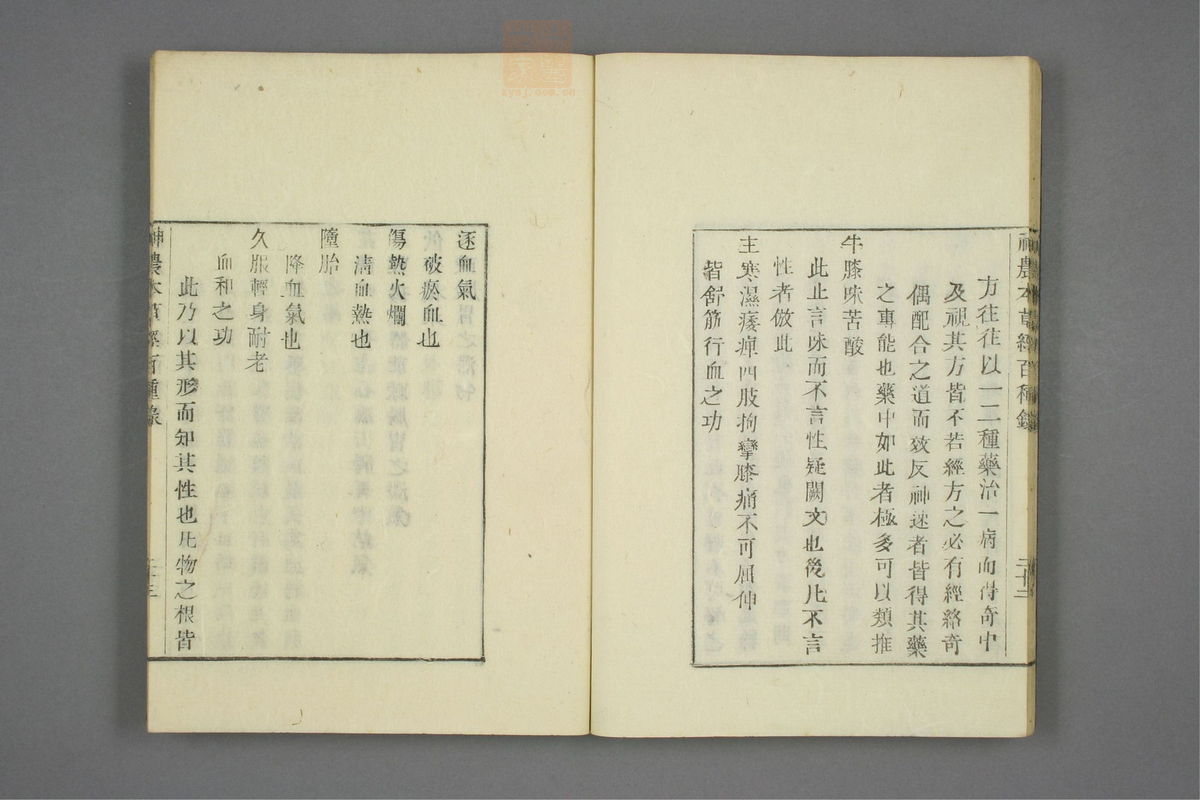 神農本草經百種錄
二十二
方往往以一二種藥治一病而得奇中
及視其方皆不若經方之必有經絡奇
偶配合之道而效反神速者皆得其藥
之專能也藥中如此者極多可以類推
牛膝味苦酸
此止言味而不言性疑闕文也後凡不言
性者倣此
主寒濕痿痺四肢拘攣膝痛不可屈伸
皆舒筋行血之功
逐血氣
破瘀血也
傷熱火爛
清血熱也
墮胎
降血氣也
久服輕身耐老
血和之功
此乃以其形而知其性也凡物之根皆
神農本草經百種錄
zysj.com.cn